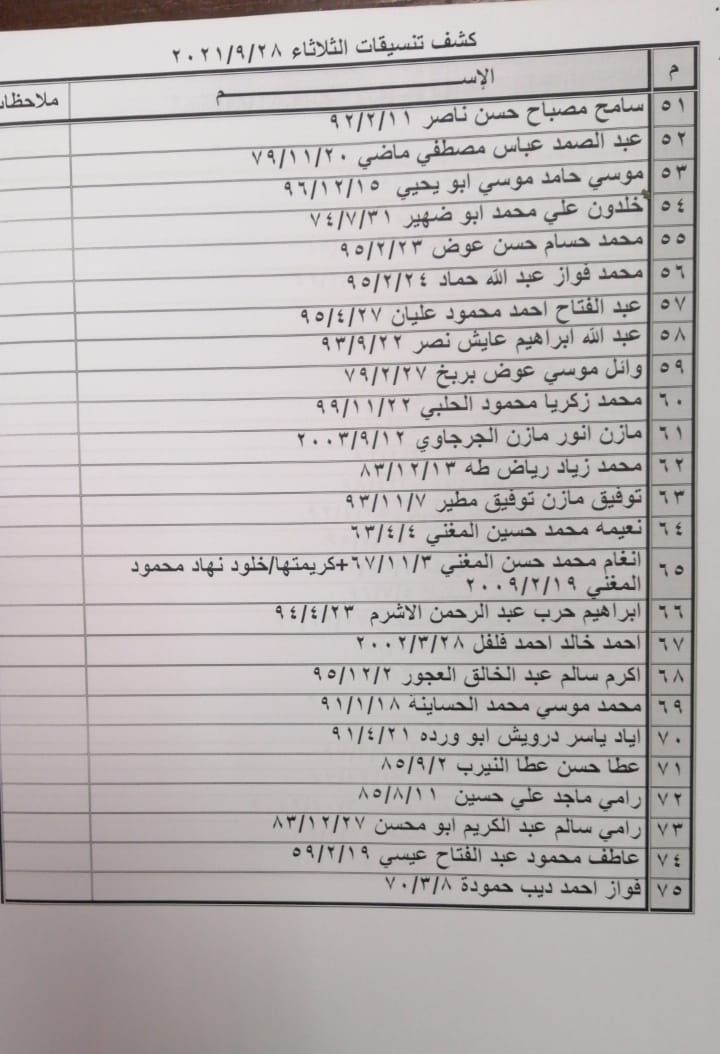 كشف تنسيقات الثلاثاء ٢٠٢١/٩/٢٨
م الإســـــم ملاحظات
٥١ سامح مصباح حسن ناصر ٩٢/٢/١١
٥٢ عبد الصمد عباس مصطفي ماضي ٧٩/١١/٢٠
٥٣ موسي حامد موسي ابو يحيي ٩٦/١٢/١٥
٥٤ خلدون علي محمد ابو ضهير ٧٤/٧/٣١
٥٥ محمد حسام حسن عوض ٩٥/٢/٢٣
٥٦ محمد فواز عبد الله حماد ٩٥/٢/٢٤
٥٧ عبد الفتاح احمد محمود عليان ٩٥/٤/٢٧
٥٨ عبد الله ابراهيم عايش نصر ٩٣/٩/٢٢
٥٩ وائل موسي عوض بربخ ٧٩/٢/٢٧
٦٠ محمد زكريا محمود الحلبي ٩٩/١١/٢٢
٦١ مازن انور مازن الجرجاوي ٢٠٠٣/٩/١٢
٦٢ محمد زياد رياض طه ٨٣/١٢/١٣
٦٣ توفيق مازن توفيق مطير ٩٣/١١/٧
٦٤ نعيمه محمد حسين المغني ٦٣/٤/٤
٦٥ انغام محمد حسن المغني ٦٧/١١/٣+كريمتها/خلود نهاد محمود
المغني ٢٠٠٩/٢/١٩
٦٦ ابراهيم حرب عبد الرحمن الاشرم ٩٤/٤/٢٣
٦٧ احمد خالد احمد فلفل ٢٠٠٢/٣/٢٨
٦٨ اكرم سالم عبد الخالق العجور ٩٥/١٢/٢
٦٩ محمد موسي محمد الحساينة ٩١/١/١٨
٧٠ اياد ياسر درويش ابو ورده ٩١/٤/٢١
٧١ عطا حسن عطا النيرب ٨٥/٩/٢
٧٢ رامي ماجد علي حسين ٨٥/٨/١١
٧٣ رامي سالم عبد الكريم ابو محسن ٨٣/١٢/٢٧
٧٤ عاطف محمود عبد الفتاح عيسي ٥٩/٢/١٩
٧٥ فواز احمد ديب حمودة ٧٠/٣/٨